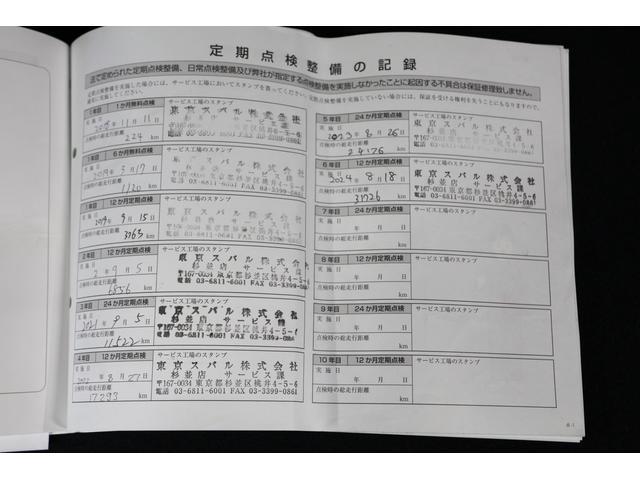 定期点検整備の記録
法で定められた定期点検整備、日常点検整備及び弊社が指定する点検整備を実施しなかったことに起因する不具合は保証修理致しません。
1か月無料点検
サービス工場のスタンプ
実施日
2018年11月11日
東京スバル株式会社
杉並店 サービス課
点検時の総走行距離
224 km
1年目 6か月無料点検
サービス工場のスタンプ
実施日
2019年3月17日
東京スバル株式会社
杉並店 サービス課
点検時の総走行距離
1120 km
1年目 12か月定期点検
サービス工場のスタンプ
実施日
2019年9月15日
東京スバル株式会社
杉並店 サービス課
点検時の総走行距離
3765 km
2年目 12か月定期点検
サービス工場のスタンプ
実施日
2年9月5日
東京スバル株式会社
杉並店 サービス課
〒167-0034 東京都杉並区桃井4-5-6
電話 03-6811-6001 FAX 03-3399-0861
点検時の総走行距離
6556 km
3年目 24か月定期点検
サービス工場のスタンプ
実施日
2021年9月5日
東京スバル株式会社
杉並店 サービス課
〒167-0034 東京都杉並区桃井4-5-6
電話 03-6811-6001 FAX 03-3399-0861
点検時の総走行距離
11522 km
4年目 12か月定期点検
サービス工場のスタンプ
実施日
2022年8月27日
東京スバル株式会社
杉並店 サービス課
〒167-0034 東京都杉並区桃井4-5-6
電話 03-6811-6001 FAX 03-3399-0861
点検時の総走行距離
17293 km
5年目 24か月定期点検
サービス工場のスタンプ
実施日
2023年8月26日
東京スバル株式会社
杉並店 サービス課
点検時の総走行距離
24126 km
6年目 12か月定期点検
サービス工場のスタンプ
実施日
2024年8月18日
東京スバル株式会社
杉並店 サービス課
〒167-0034 東京都杉並区桃井4-5-6
電話 03-6811-6001 FAX 03-3399-0861
点検時の総走行距離
31726 km
7年目 24か月定期点検
サービス工場のスタンプ
実施日
年 月 日
点検時の総走行距離
km
8年目 12か月定期点検
サービス工場のスタンプ
実施日
年 月 日
点検時の総走行距離
km
9年目 24か月定期点検
サービス工場のスタンプ
実施日
年 月 日
点検時の総走行距離
km
10年目 12か月定期点検
サービス工場のスタンプ
実施日
年 月 日
点検時の総走行距離
km